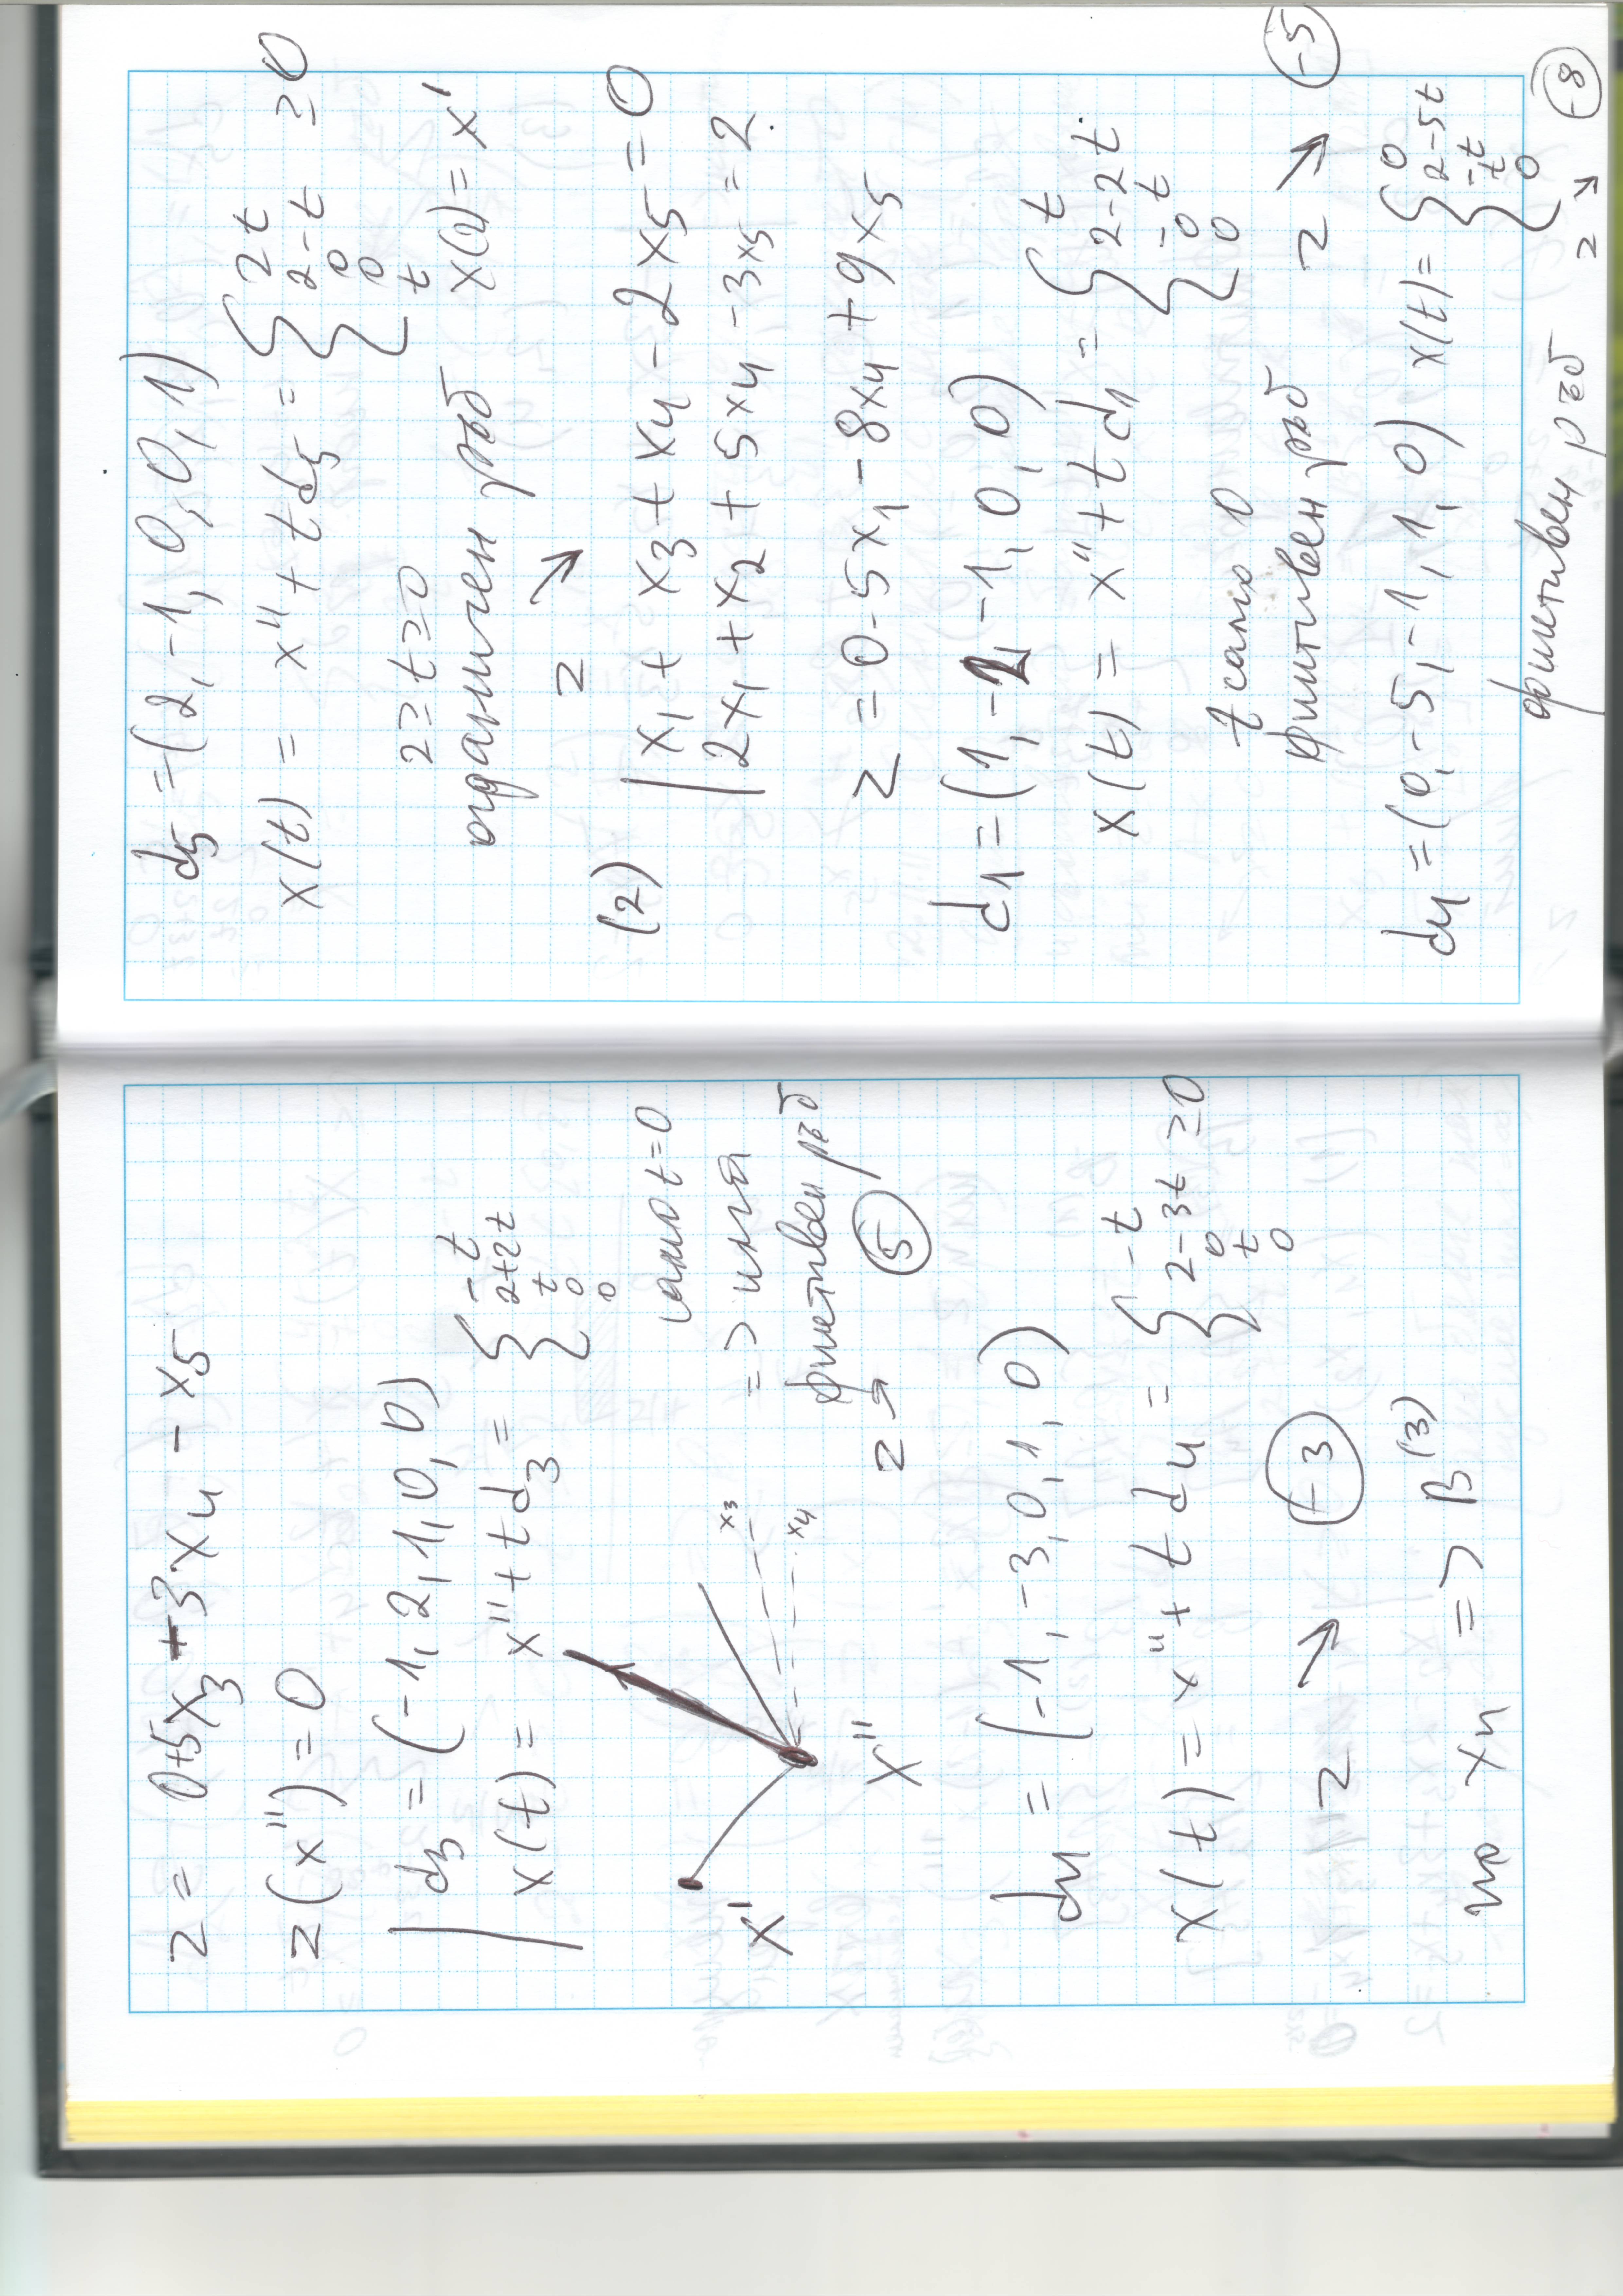 z = 0+5x₃ -3x₄ - x₅
z(x'') = 0
d₃ = (-1, 2, 1, 0, 0)
x(t) = x'' + t d₃ = { -t
2+2t
t
0
0
само t=0
x₃
x₄
=> има
фиктивен ръб
x'
x''
z ↗ (5)
d₄ = (-1, -3, 0, 1, 0)
x(t) = x'' + t d₄ = { -t
2-3t
0
t
0
≥0
z ↘ (-3)
по x₄ => B⁽³⁾
d₅ = (2, -1, 0, 0, 1)
x(t) = x'' + t d₅ = { 2t
2-t
0
0
t
≥ 0
2 ≥ t ≥ 0
x(2) = x'
ограничен ръб
z ↘
(2) | x₁ + x₃ + x₄ - 2x₅ = 0
2x₁ + x₂ + 5x₄ - 3x₅ = 2
z = 0 - 5x₁ - 8x₄ + 9x₅
d₁ = (1, -2, -1, 0, 0)
x(t) = x'' + t d₁ = { t
2-2t
-t
0
0
t само 0
фиктивен ръб z ↘ (-5)
d₄ = (0, -5, -1, 1, 0) x(t) = { 0
2-5t
-t
t
0
фиктивен ръб z ↘ (-8)